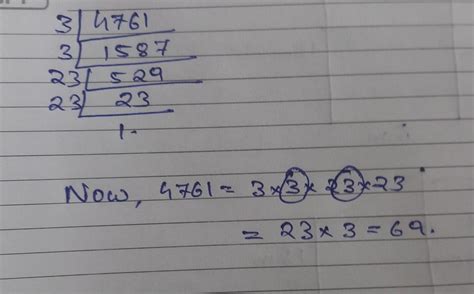 3 | 4761
3 | 1587
23 | 529
23 | 23
1.
Now, 4761 = 3 × 3 × 23 × 23
= 23 × 3 = 69.